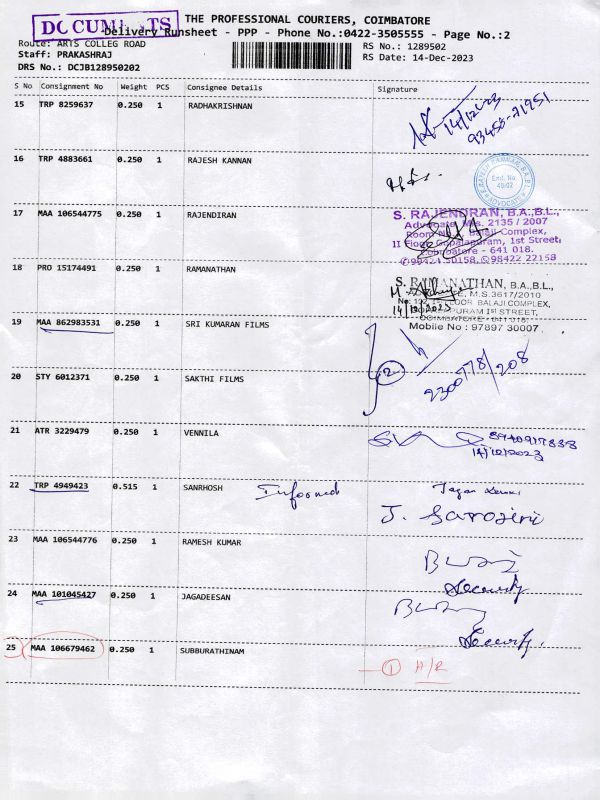 DOCUMENTS
THE PROFESSIONAL COURIERS, COIMBATORE
Delivery Runsheet - PPP - Phone No.:0422-3505555 - Page No.:2
Route: ARTS COLLEG ROAD
RS No.: 1289502
Staff: PRAKASHRAJ
RS Date: 14-Dec-2023
DRS No.: DCJB128950202
S No Consignment No Weight PCS Consignee Details Signature
15 TRP 8259637 0.250 1 RADHAKRISHNAN
14/12/23
93458-21951
16 TRP 4883661 0.250 1 RAJESH KANNAN
17 MAA 106544775 0.250 1 RAJENDIRAN
S. RAJENDRAN, B.A.,B.L.,
Advocate, Ms. 2135 / 2007
Room Balaji Complex,
II Floor, Gopalapuram, 1st Street,
Coimbatore - 641 018.
98424 50158, 98422 22158
18 PRO 15174491 0.250 1 RAMANATHAN
S. RAMANATHAN, B.A.,B.L.,
M.S.3617/2010
FLOOR BALAJI COMPLEX,
14/12/2023
Mobile No : 97897 30007
19 MAA 862983531 0.250 1 SRI KUMARAN FILMS
2
2300778/208
20 STY 6012371 0.250 1 SAKTHI FILMS
21 ATR 3229479 0.250 1 VENNILA
8940917838
14/12/2023
22 TRP 4949423 0.515 1 SANRHOSH Informed
J. Sarojini
23 MAA 106544776 0.250 1 RAMESH KUMAR
Security
24 MAA 101045427 0.250 1 JAGADEESAN
Security
25 MAA 106679462 0.250 1 SUBBURATHINAM
1 A/R